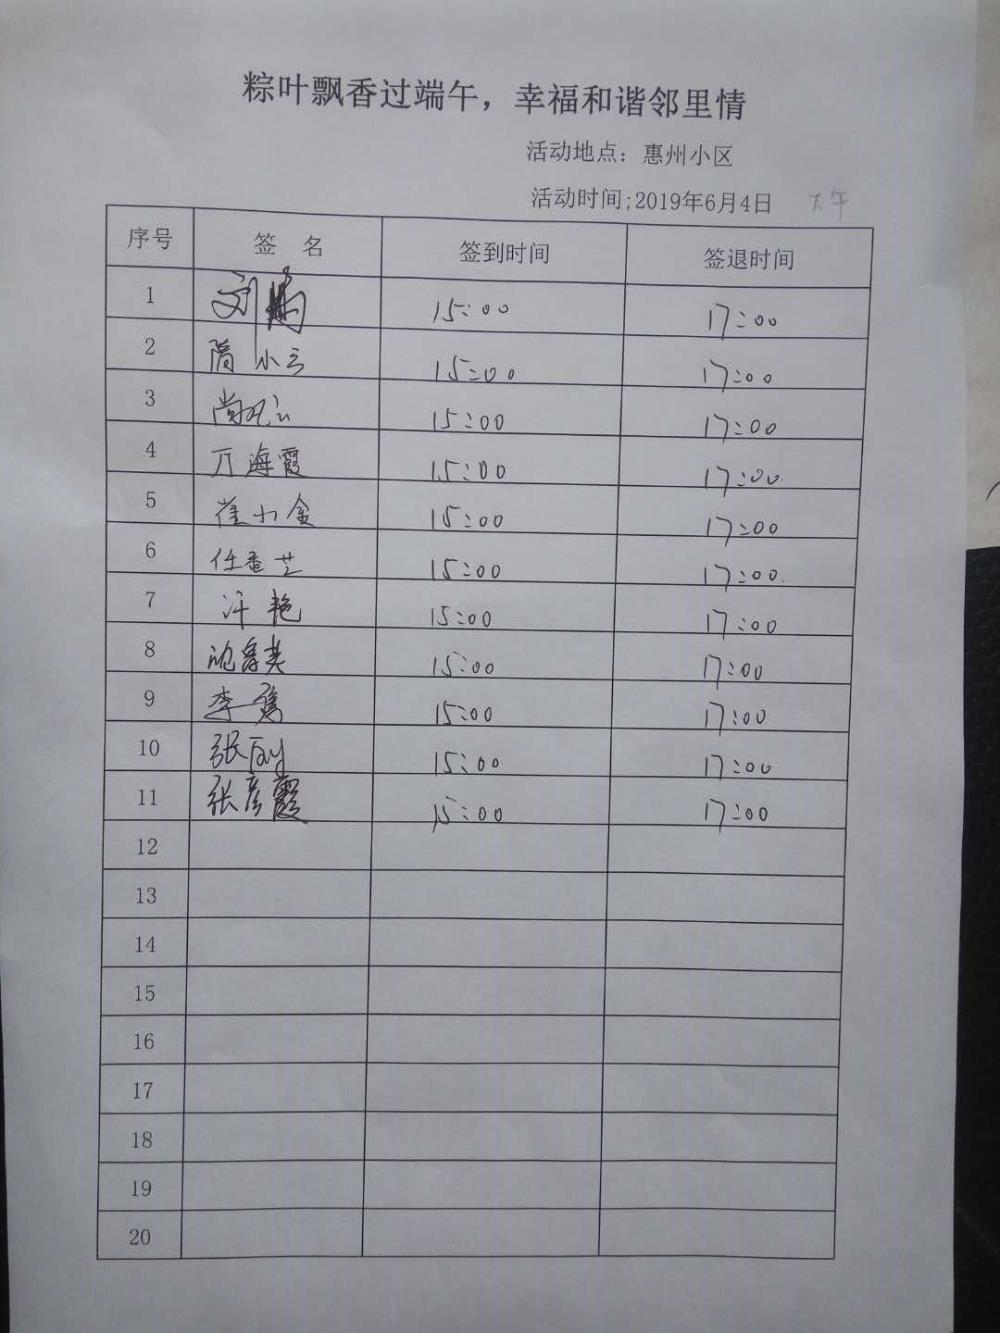 粽叶飘香过端午，幸福和谐邻里情
活动地点：惠州小区
活动时间;2019年6月4日 下午
序号 签 名 签到时间 签退时间
1 刘 15:00 17:00
2 隋小云 15:00 17:00
3 尚 15:00 17:00
4 万海霞 15:00 17:00
5 崔小金 15:00 17:00
6 任香芝 15:00 17:00
7 许艳 15:00 17:00
8 15:00 17:00
9 李隽 15:00 17:00
10 张丽 15:00 17:00
11 张彦霞 15:00 17:00
12
13
14
15
16
17
18
19
20